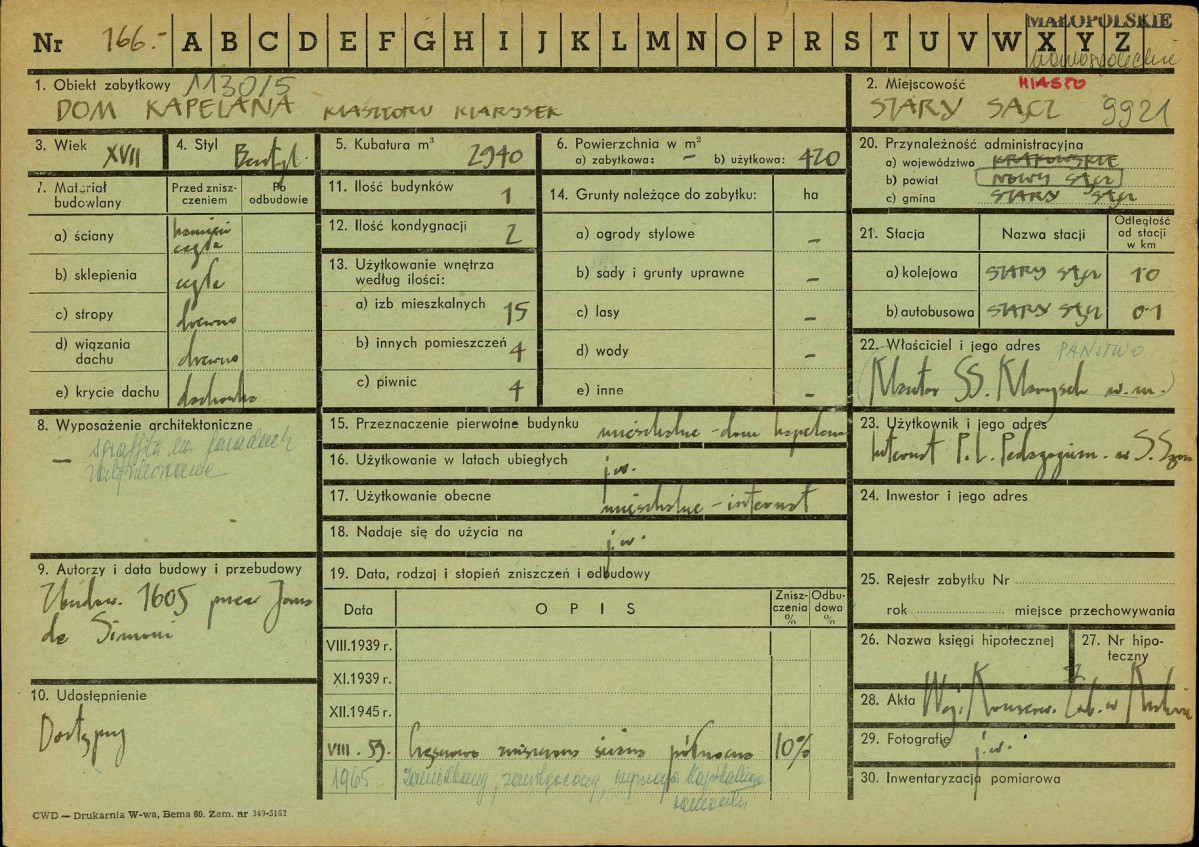 MAŁOPOLSKIE
Nr 166.- A B C D E F G H I J K L M N O P R S T U V W X Y Z
nowosądeckie
1. Obiekt zabytkowy 1130/5
DOM KAPELANA KLASZTORU KLARYSEK
2. Miejscowość MIASTO
STARY SĄCZ 9921
3. Wiek XVII
4. Styl
5. Kubatura m³ 2940
6. Powierzchnia w m²
a) zabytkowa: – b) użytkowa: 420
7. Materiał budowlany
Przed znisz-
czeniem
Po
odbudowie
a) ściany kamień
cegła
b) sklepienia cegła
c) stropy drewno
d) wiązania
dachu drewno
e) krycie dachu dachówka
8. Wyposażenie architektoniczne
– sgraffita na fasadach
9. Autorzy i data budowy i przebudowy
Zbudow. 1605 przez Jana
de Simoni
10. Udostępnienie
Dostępny
11. Ilość budynków 1
12. Ilość kondygnacji 2
13. Użytkowanie wnętrza
według ilości:
a) izb mieszkalnych 15
b) innych pomieszczeń 4
c) piwnic 4
14. Grunty należące do zabytku: ha
a) ogrody stylowe –
b) sady i grunty uprawne –
c) lasy –
d) wody –
e) inne –
15. Przeznaczenie pierwotne budynku mieszkalne – dom kapelana
16. Użytkowanie w latach ubiegłych j.w.
17. Użytkowanie obecne mieszkalne – internat
18. Nadaje się do użycia na j.w.
19. Data, rodzaj i stopień zniszczeń i odbudowy
Data OPIS Znisz-
czenia
% Odbu-
dowa
%
VIII.1939 r.
XI.1939 r.
XII.1945 r.
VIII. 59. Częściowo zniszczona ściana północna 10%
1965 zaniedbany, zawilgocony, wymaga kapitalnego
remontu
20. Przynależność administracyjna
a) województwo KRAKOWSKIE
b) powiat NOWY SĄCZ
c) gmina STARY SĄCZ
21. Stacja Nazwa stacji Odległość
od stacji
w km
a) kolejowa STARY SĄCZ 1.0
b) autobusowa STARY SĄCZ 0.1
22. Właściciel i jego adres PAŃSTWO
(Klasztor SS. Klarysek w.m.)
23. Użytkownik i jego adres
Internat P.L. Pedagogiczn. w S. Sączu
24. Inwestor i jego adres
25. Rejestr zabytku Nr
rok miejsce przechowywania
26. Nazwa księgi hipotecznej
27. Nr hipo-
teczny
28. Akta Woj. Konserw. Zab. w Krakowie
29. Fotografie j.w.
30. Inwentaryzacja pomiarowa
CWD — Drukarnia W-wa, Bema 60. Zam. nr 349-5162